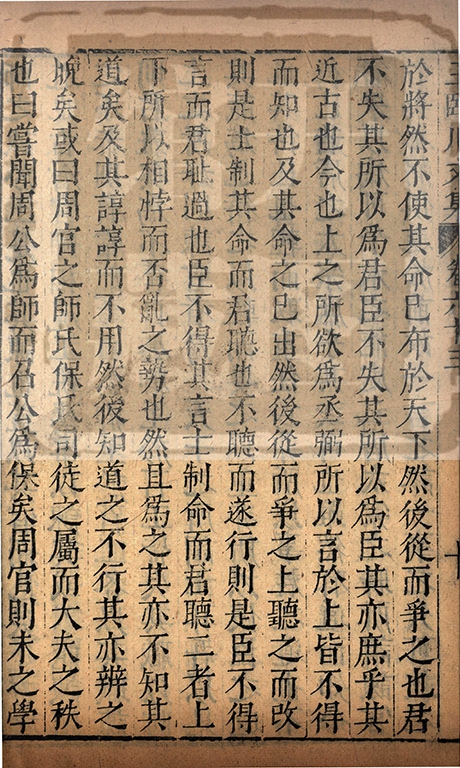 王臨川文集 卷六十三 十
於將然不使其命已布於天下然後從而爭之也君
不失其所以為君臣不失其所以為臣其亦庶乎其
近古也今也上之所欲為丞弼所以言於上皆不得
而知也及其命之已出然後從而爭之上聽之而改
則是士制其命而君聽也不聽而遂行則是臣不得
言而君耻過也臣不得其言士制命而君聽二者上
下所以相悖而否亂之勢也然且為之其亦不知其
道矣及其諄諄而不用然後知道之不行其亦辨之
晚矣或曰周官之師氏保氏司徒之屬而大夫之秩
也曰嘗聞周公為師而召公為保矣周官則未之學